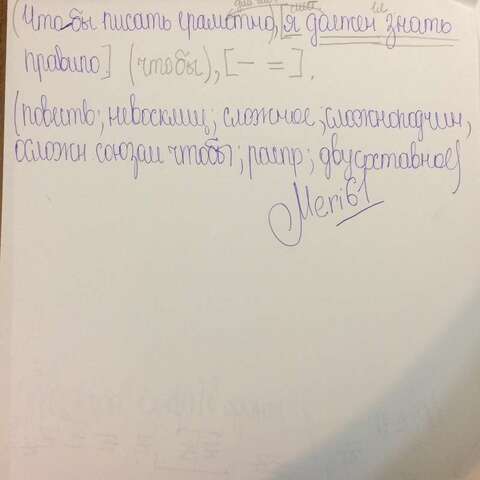 (Что-бы писать грамотно, [я должен знать
правило] (чтобы), [ – = ].
(повеств; невосклиц; сложное; сложноподчин,
осложн союзом чтобы; распр; двусоставное)
Meri61